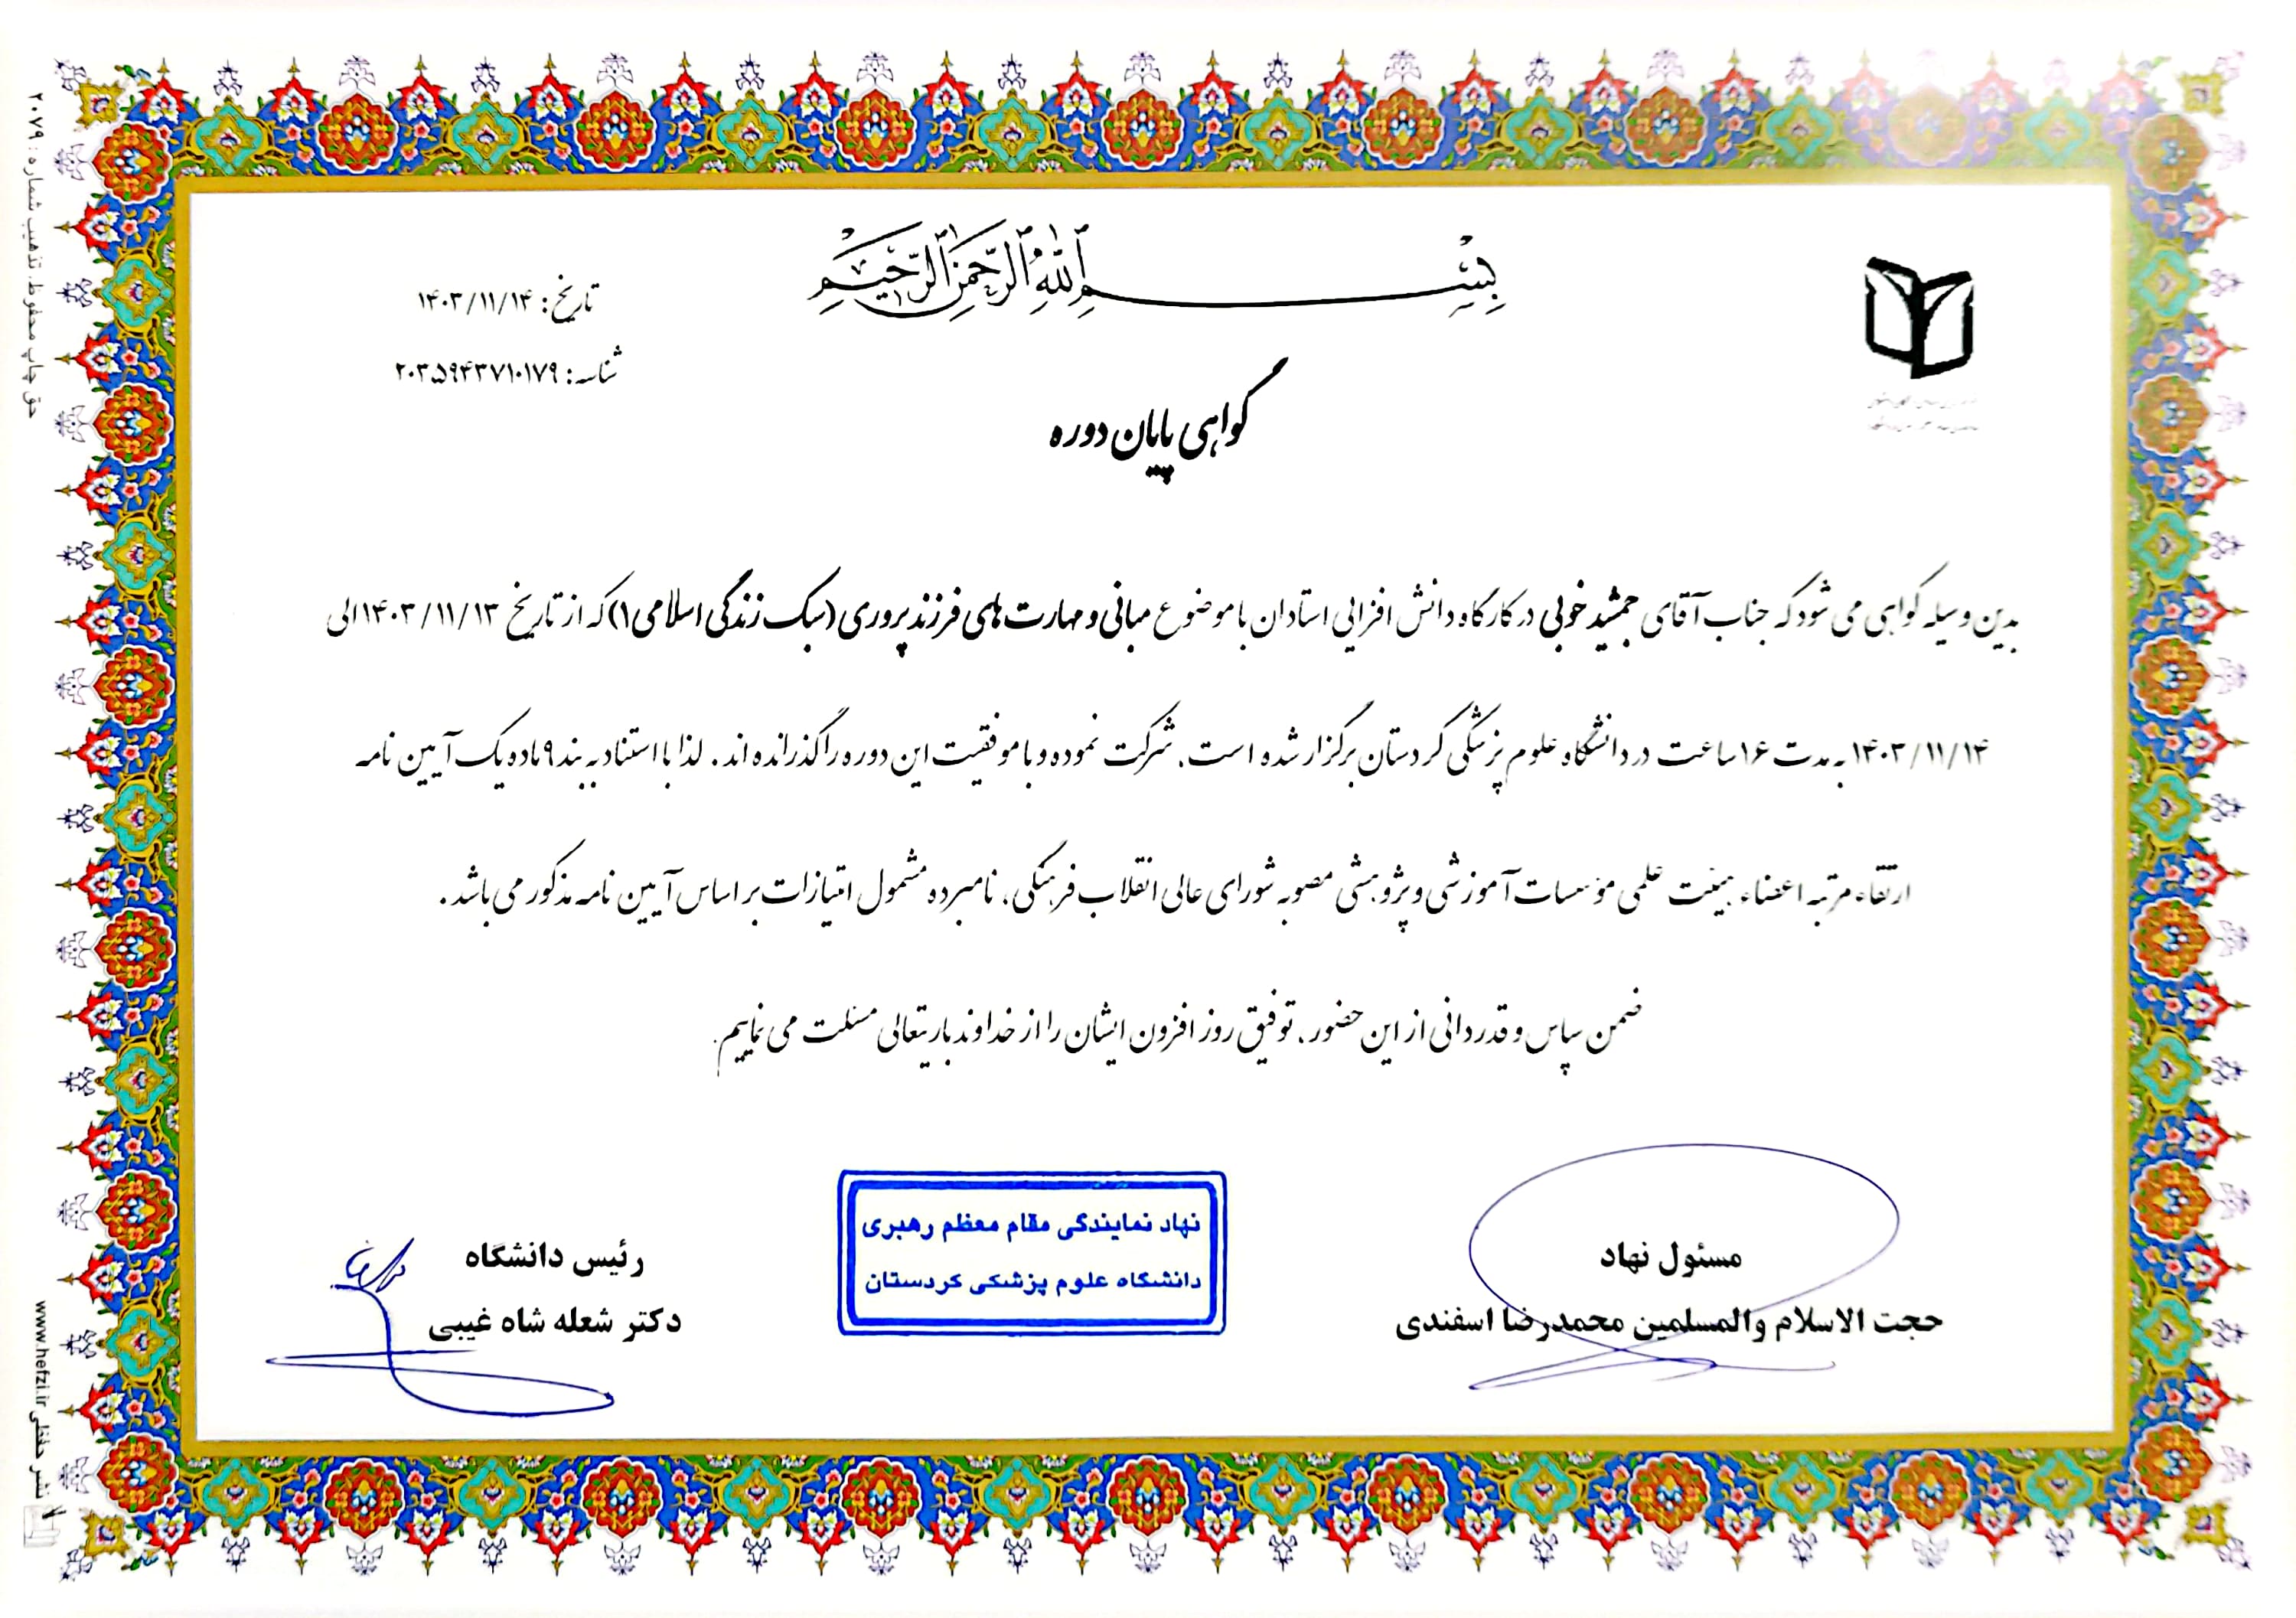 بسم الله الرحمن الرحیم
تاریخ: ۱۴۰۳/۱۱/۱۴
شناسه: ۲۰۳۵۹۴۳۷۱۰۱۷۹
گواهی پایان دوره
بدین وسیله گواهی می شود که جناب آقای جمشید خوبی در کارگاه دانش افزایی استادان با موضوع مبانی و مهارت های فرزندپروری (سبک زندگی اسلامی ۱) که از تاریخ ۱۴۰۳/۱۱/۱۳ الی
۱۴۰۳/۱۱/۱۴ به مدت ۱۶ ساعت در دانشگاه علوم پزشکی کردستان برگزار شده است، شرکت نموده و با موفقیت این دوره را گذرانده اند. لذا با استناد به بند ۹ ماده یک آیین نامه
ارتقاء مرتبه اعضاء هیئت علمی مؤسسات آموزشی و پژوهشی مصوبه شورای عالی انقلاب فرهنگی، نامبرده مشمول امتیازات بر اساس آیین نامه مذکور می باشد.
ضمن سپاس و قدردانی از این حضور، توفیق روز افزون ایشان را از خداوند باریتعالی مسئلت می نماییم.
مسئول نهاد
حجت الاسلام والمسلمین محمدرضا اسفندی
نهاد نمایندگی مقام معظم رهبری
دانشگاه علوم پزشکی کردستان
رئیس دانشگاه
دکتر شعله شاه غیبی
حق چاپ محفوظ. تذهیب شماره: ۲۰۷۹
نشر حفظی www.hefzi.ir